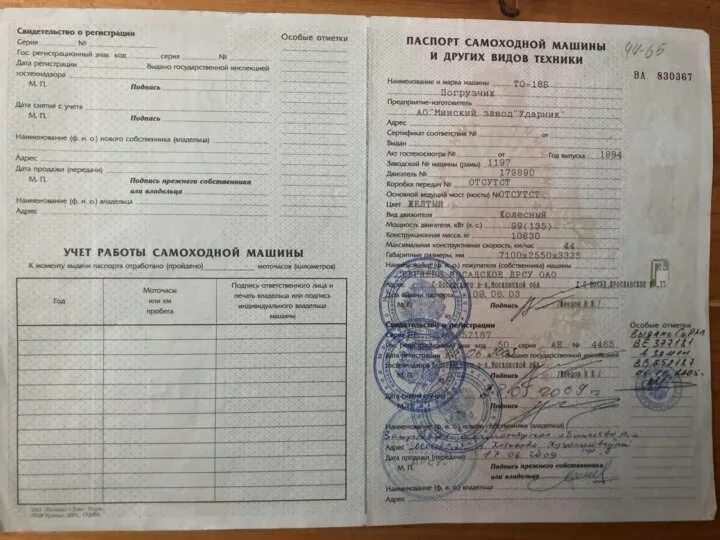 Свидетельство о регистрации
Особые отметки
Серия № 
Гос. регистрационный знак код серия №
Дата регистрации Выдано государственной инспекцией
гостехнадзора
М. П. Подпись
Дата снятия с учета
М. П. Подпись
Наименование (ф. и. о.) нового собственника (владельца)
Адрес
Дата продажи (передачи)
М. П. Подпись прежнего собственника
или владельца
Наименование (ф. и. о.) владельца
Адрес
УЧЕТ РАБОТЫ САМОХОДНОЙ МАШИНЫ
К моменту выдачи паспорта отработано (пройдено) моточасов (километров)
Год
Моточасы
или км
пробега
Подпись ответственного лица и
печать владельца или подпись
индивидуального владельца
машины
ПАСПОРТ САМОХОДНОЙ МАШИНЫ
И ДРУГИХ ВИДОВ ТЕХНИКИ
44-65
ВА 830367
Наименование и марка машины ТО-18Б
Погрузчик
Предприятие-изготовитель
АО"Минский завод"Ударник"
Адрес
Сертификат соответствия № от
Выдан
Акт гостехосмотра № от Год выпуска 1994
Заводской № машины (рамы) 1197
Двигатель № 179890
Коробка передач № ОТСУТСТ
Основной ведущий мост (мосты) № ОТСУТСТ
Цвет ЖЕЛТЫЙ
Вид движителя Колесный
Мощность двигателя, кВт (л. с.) 99(135)
Конструкционная масса, кг 10630
Максимальная конструктивная скорость, км/час 44
Габаритные размеры, мм 7100х2550х3325
Наименование (ф. и. о.) покупателя (собственника) машины
СЕРГИЕВО ПОСАДСКОЕ ДРСУ ОАО
Адрес С-Посадского р-а,Московской обл.
Дата выдачи паспорта 08.08.03
М. П.
Свидетельство о регистрации
Особые отметки
Серия № 052187
Гос. регистрационный знак код 50 серия АЕ № 4465
Дата регистрации Выдано государственной инспекцией
гостехнадзора р-а,Московской обл.
М. П. Подпись
Выдано
ВЕ 377181
взамен
Дата снятия с учета 2009г.
М. П. Подпись
Наименование (ф. и. о.) нового собственника (владельца)
Адрес
Дата продажи (передачи) 17 06 2009
М. П. Подпись прежнего собственника
или владельца
Наименование (ф. и. о.) владельца
Адрес